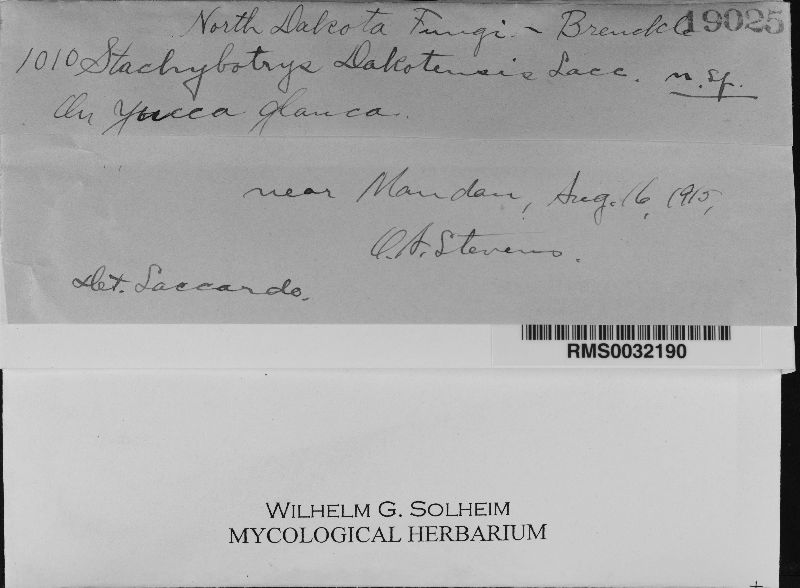 North Dakota Fungi - Brenckle 19025
1010 Stachybotrys Dakotensis Sacc. n. sp.
On Yucca glauca.
near Mandan, Aug. 16, 1915,
O.A. Stevens.
Det. Saccardo.
RMS0032190
WILHELM G. SOLHEIM
MYCOLOGICAL HERBARIUM